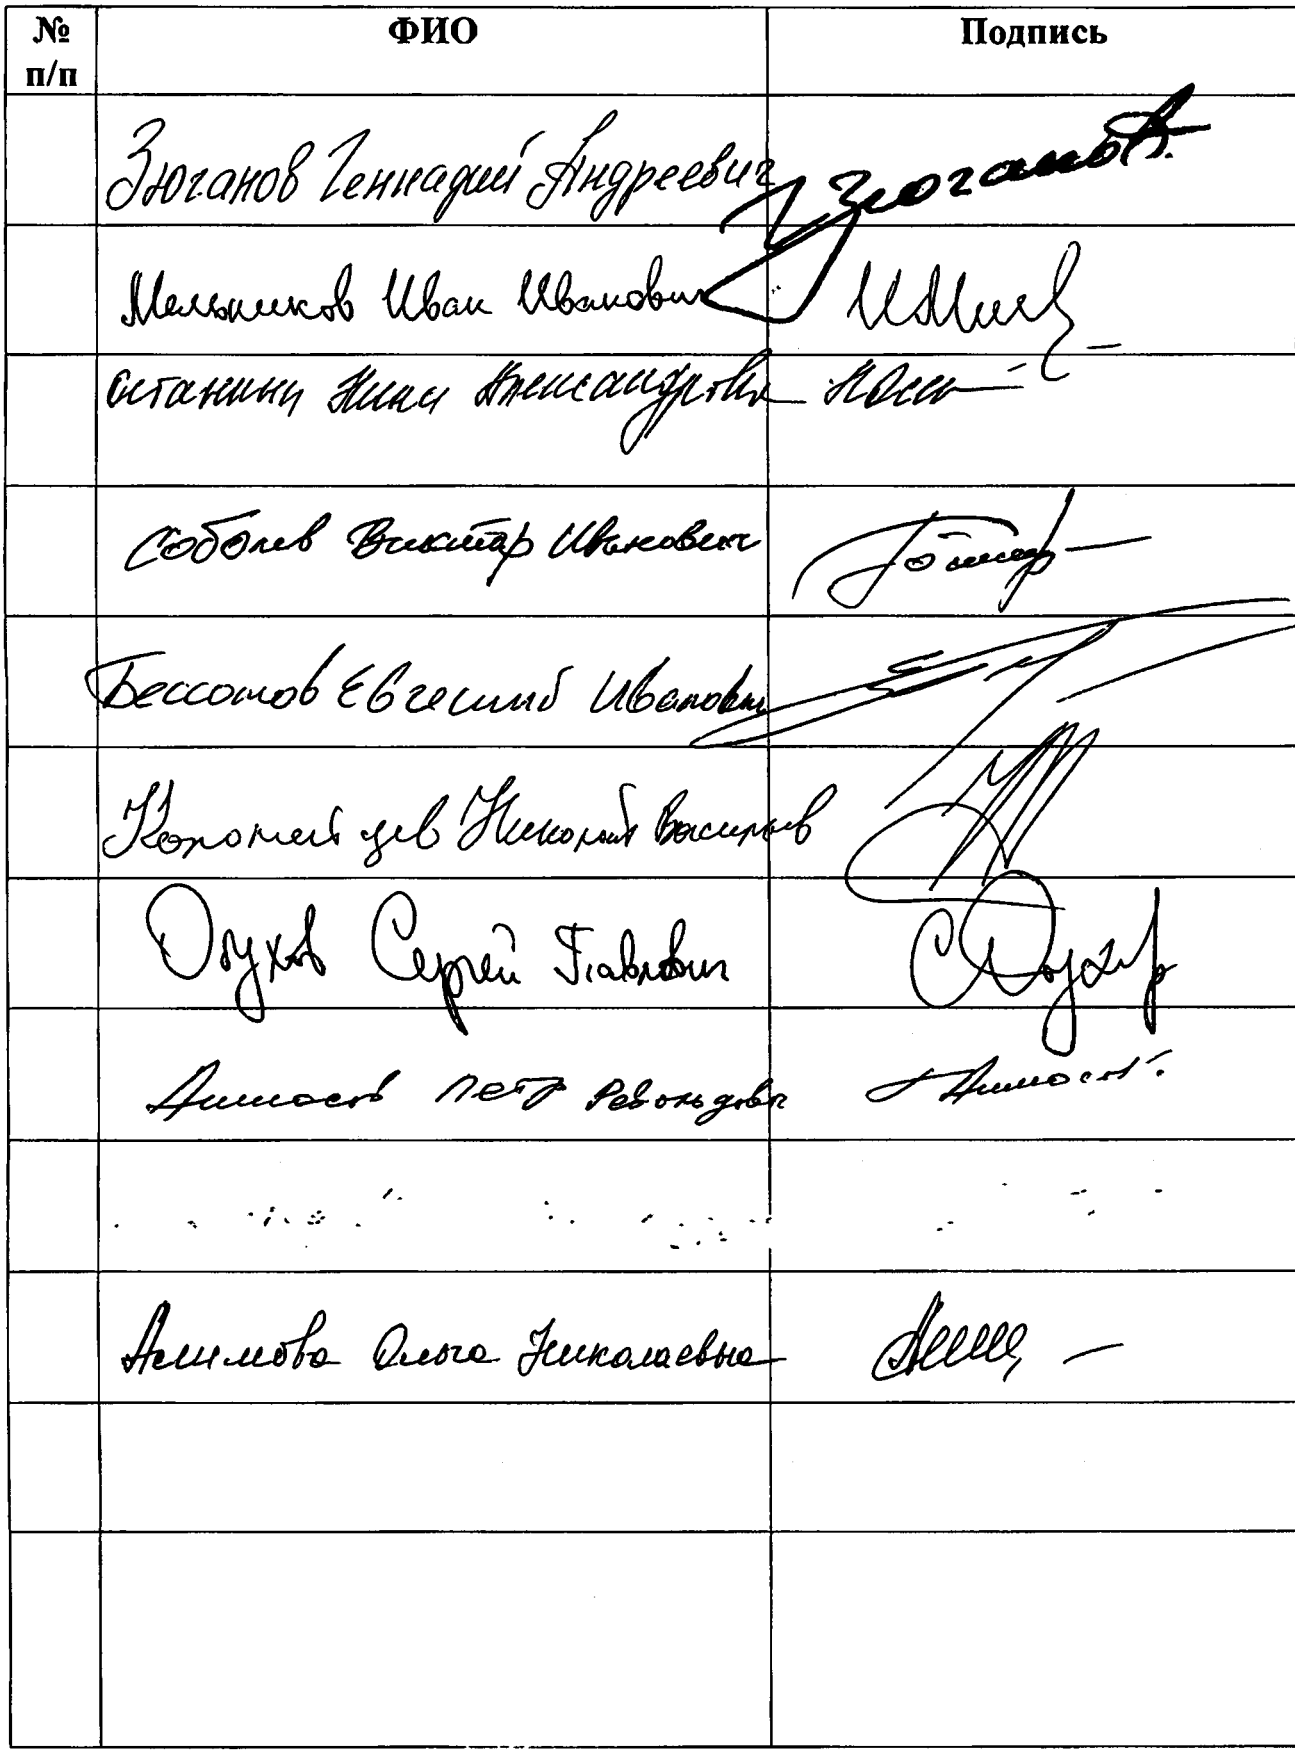 № п/п ФИО Подпись
Зюганов Геннадий Андреевич Зюганов
Мельников Иван Иванович
Останина Нина Александровна
Соболев Виктор Иванович
Бессонов Евгений Иванович
Коломейцев Николай Васильев
Обухов Сергей Павлович
Аммосов Петр Револьдович
Алимова Ольга Николаевна